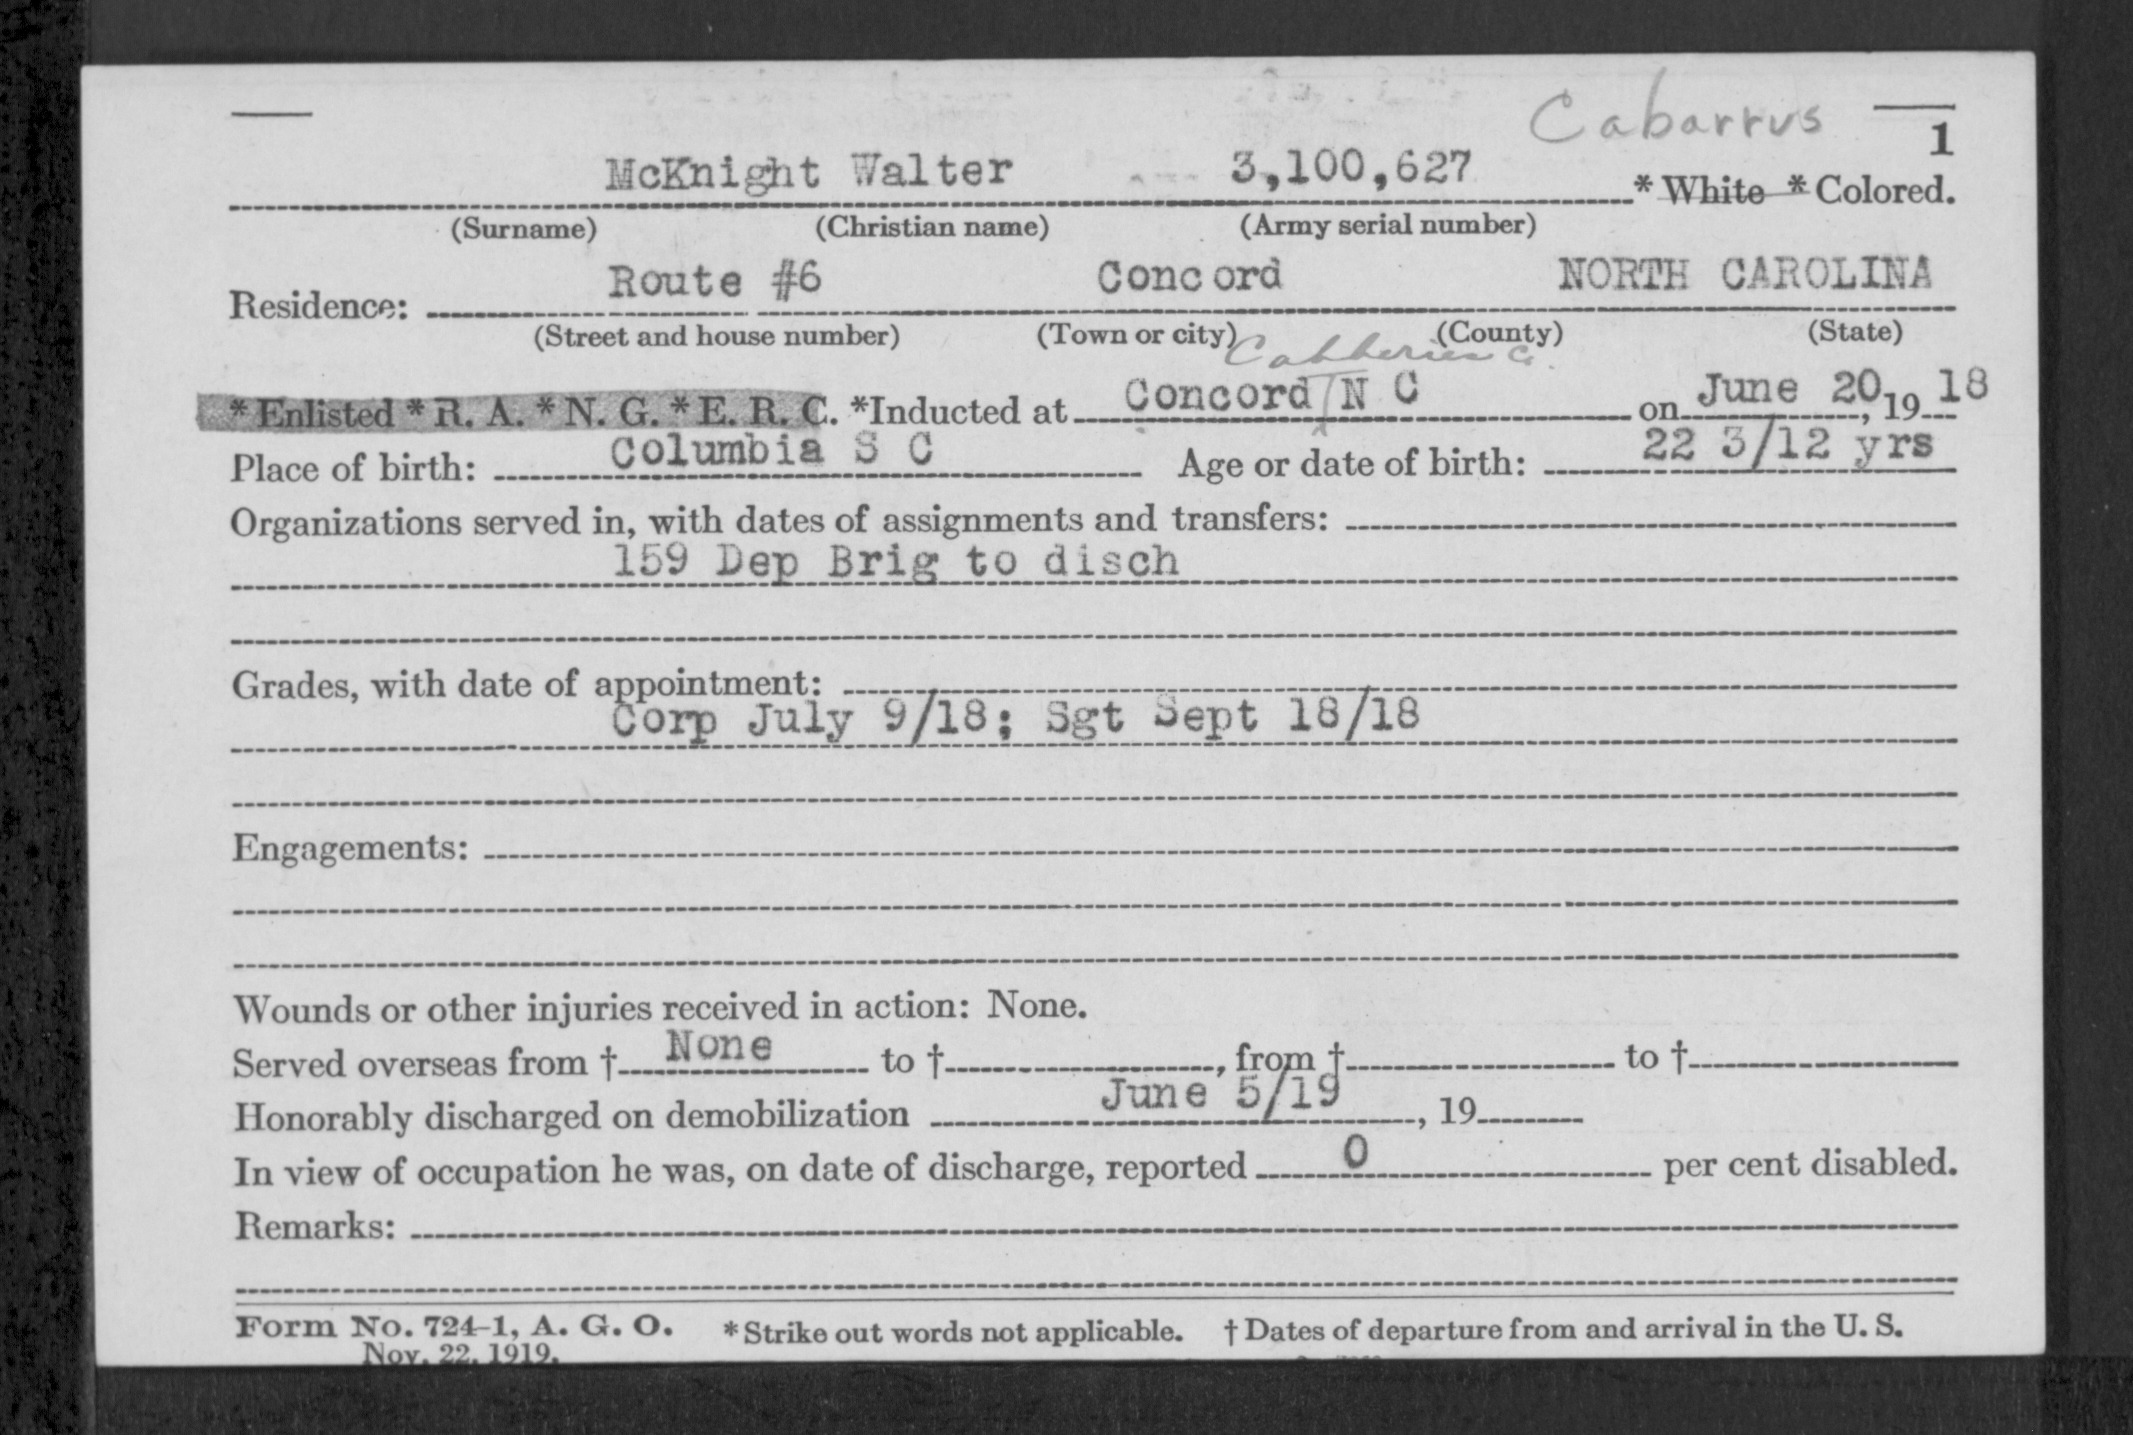 Cabarrus
1
McKnight Walter 3,100,627 * White * Colored.
(Surname) (Christian name) (Army serial number)
Route #6 Concord NORTH CAROLINA
Residence:
(Street and house number) (Town or city) (County) (State)
* Enlisted * R. A. * N. G. * E. R. C. *Inducted at Concord N C on June 20, 19 18
Place of birth: Columbia S C Age or date of birth: 22 3/12 yrs
Organizations served in, with dates of assignments and transfers:
159 Dep Brig to disch
Grades, with date of appointment:
Corp July 9/18; Sgt Sept 18/18
Engagements:
Wounds or other injuries received in action: None.
Served overseas from † None to †, from † to †
Honorably discharged on demobilization June 5/19, 19
In view of occupation he was, on date of discharge, reported 0 per cent disabled.
Remarks:
Form No. 724-1, A. G. O. * Strike out words not applicable. † Dates of departure from and arrival in the U. S.
Nov. 22, 1919.